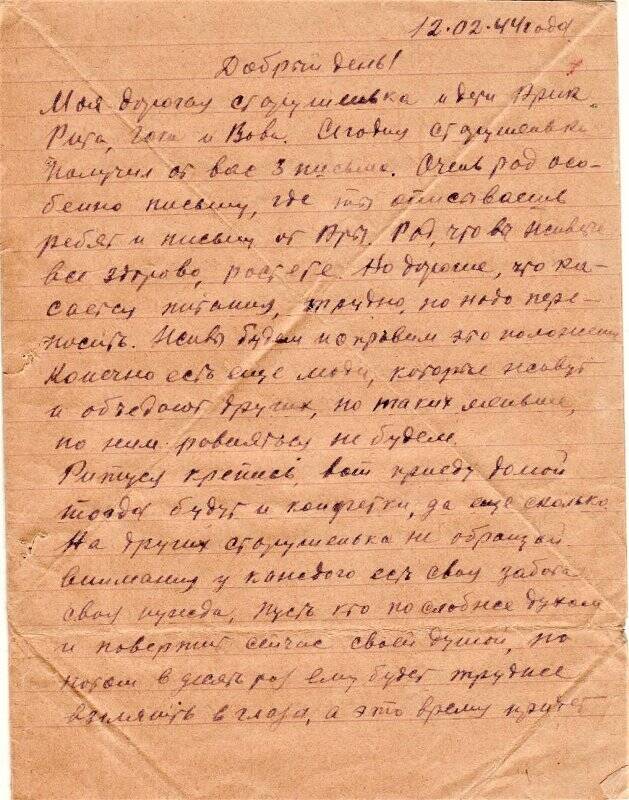 12.02.44 года
Добрый день!
Моя дорогая старушенька и дети Арик
Рита, Гога и Вова. Сегодня старушенька
получил от вас 3 письма. Очень рад осо-
бенно письму, где ты описываешь
ребят и письму от Ары. Рад, что вы живете
все здорово, растете. Но дорогие, что ка-
сается питания, трудно, но надо пере-
носить. Живы будем поправим это положение
Конечно есть еще люди, которые живут
и объедают других, но таких меньше,
по ним ровняться не будем.
Ритуся крепись, вот приеду домой
тогда будут и конфетки, да еще сколько.
На других старушенька не обращай
внимания у каждого есть своя забота
своя нужда, пусть кто послабже духом
и повертит сейчас своей душой, но
потом в десять раз ему будет труднее
взглянуть в глаза, а это время придет